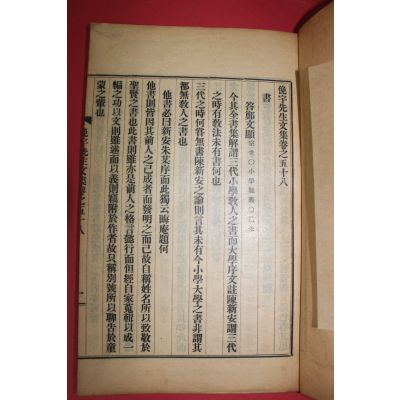 俛宇先生文集卷之五十八
書
答鄭文顯
今其全書集解謂三代小學敎人之書而大學序文註陳新安謂三代
之時有敎法未有書何也
三代之時何嘗無書陳新安之論則言其未有今小學大學之書非謂其
都無敎人之書也
他書必曰新安朱某序而此獨云晦庵題何
他書則皆因其前人之已成者而發明之而已故自稱姓名所以致敬於
聖賢之書也此書則雖亦是前人之格言懿行而但經自家蒐輯以成一
編之功以文則雖述而以義則竊附於作者故只稱別號所以聊告於童
蒙之輩也
俛宇先生文集卷之五十八
一